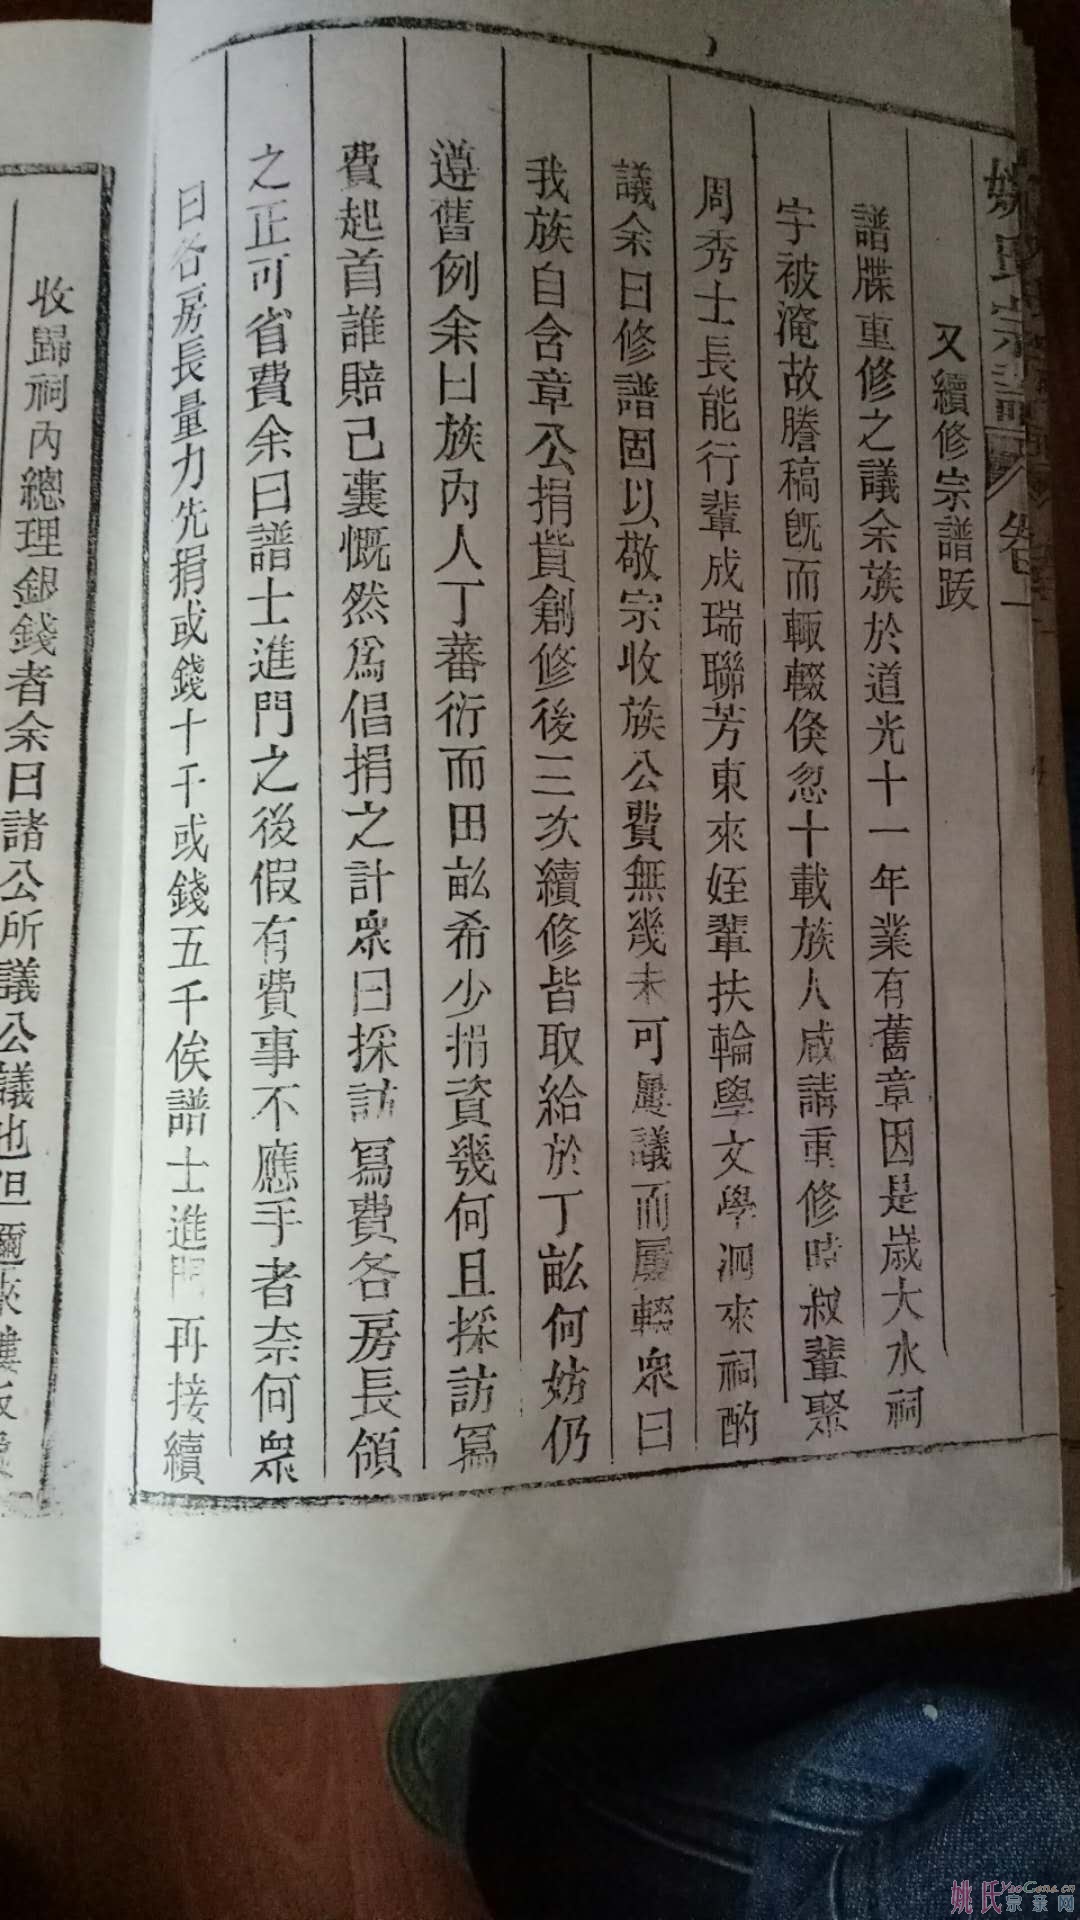 姚氏宗譜 卷一
又續修宗譜跋
譜牒重修之議余族於道光十一年業有舊章因是歲大水祠
字被淹故謄稿旣而輙輟倐忽十載族人咸請重修時叔輩聚
周秀士長能行輩成瑞聯芳東來姪輩扶輪學文學泗來祠酌
議余曰修譜固以敬宗收族公費無幾未可屢議而屢輟衆曰
我族自含章公捐貲創修後三次續修皆取給於丁畝何妨仍
遵舊例余曰族內人丁蕃衍而田畝希少捐資幾何且採訪寫
費起首誰賠己囊慨然爲倡捐之計衆曰採訪寫費各房長領
之正可省費余曰譜士進門之後假有費事不應手者奈何衆
曰各房長量力先捐或錢十千或錢五千俟譜士進門再接續
收歸祠內總理銀錢者余曰諸公所議公議也但邇來
姚氏宗亲网
YaoGens.cn